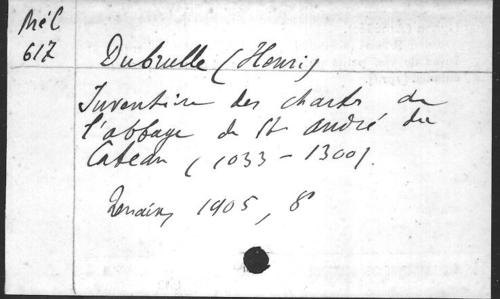 Mél
617
Dubrulle (Henri)
Inventaire des chartes de
l'abbaye de St André du
Cateau (1033-1300).
1905, 8°